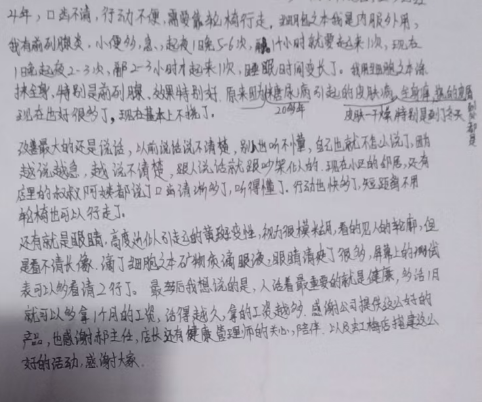 4年，口齿不清，行动不便，需要靠轮椅行走。细胞之本我是内服外用，
我有前列腺炎，小便多，急，起夜1晚5-6次，1小时就要起来1次，现在
1晚起夜2-3次，都2-3小时才起来1次，睡眠时间变长了。我用细胞之本
特别是前列腺，效果特别好。原来因为糖尿病引起的皮肤病，全身痒，
现在也好很多了，现在基本上不挠了。 20多年 皮肤干燥，特别是到了冬天
改善最大的还是说话，以前说话说不清楚，别人也听不懂，自己也就不怎么说了，因为
越说越急，越说不清楚，跟人说话就跟吵架似的。现在小区的邻居，还有
店里的叔叔阿姨都说了口齿清晰多了，听得懂了。行动也快多了，短距离不用
轮椅也可以行走了。
还有就是眼睛，高度近似引起的黄斑变性，视力很模糊，看的见人的轮廓，但
是看不清长像。滴了细胞之本矿物质滴眼液，眼睛清楚了很多，屏幕上的测试
表可以多看清了2行了。最后我想说的是，人活着最重要的就是健康，多活1月
就可以多拿1个月的工资，活得越久，拿的工资越多。感谢公司提供这么好的
产品，也感谢郝主任，店长还有健康管理师的关心，陪伴。以及员工梅店搭建这么
好的活动，感谢大家。